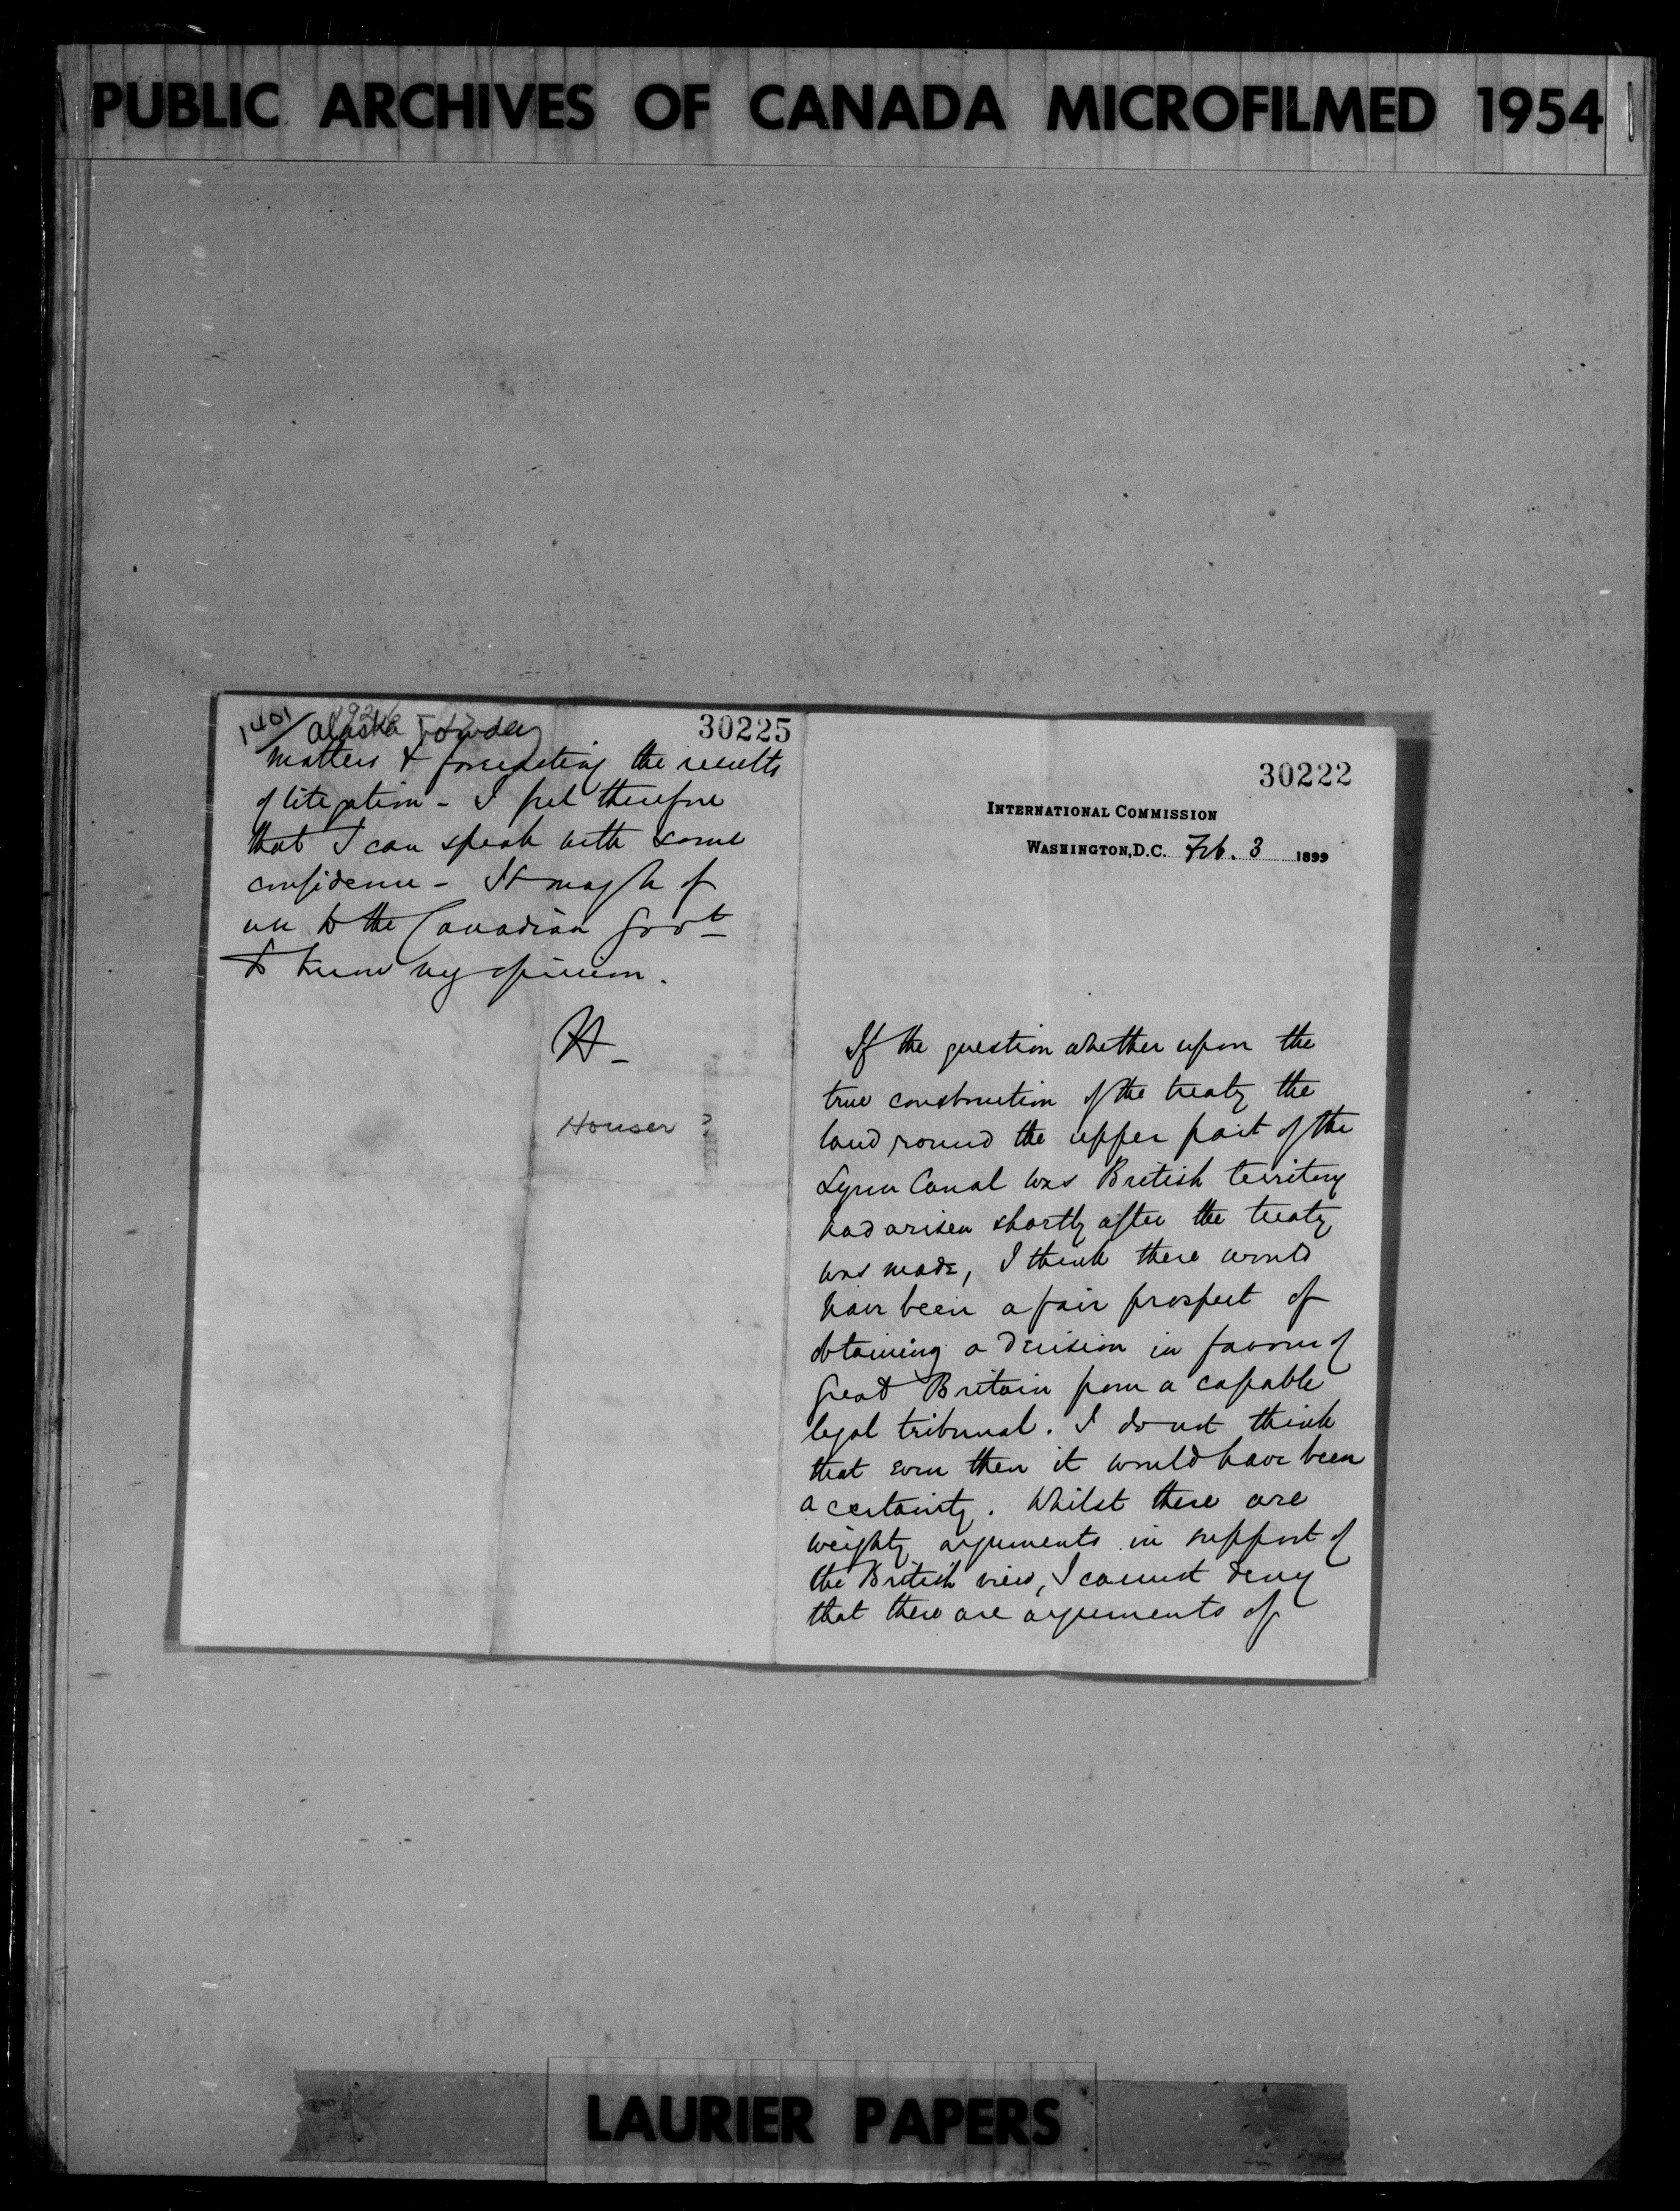 PUBLIC ARCHIVES OF CANADA MICROFILMED 1954
1401/ Alaska Boundary
30225
matters & forecasting the results
of litigation - I feel therefore
that I can speak with some
confidence - It may be of
use to the Canadian Govt
to know my opinion.
H -
Houser ?
30222
INTERNATIONAL COMMISSION
WASHINGTON, D.C. Feb. 3 1899
If the question whether upon the
true construction of the treaty the
land round the upper part of the
Lynn Canal was British territory
had arisen shortly after the treaty
was made, I think there would
have been a fair prospect of
obtaining a decision in favour of
Great Britain from a capable
legal tribunal. I do not think
that even then it would have been
a certainty. Whilst there are
weighty arguments in support of
the British view, I cannot deny
that there are arguments of
LAURIER PAPERS